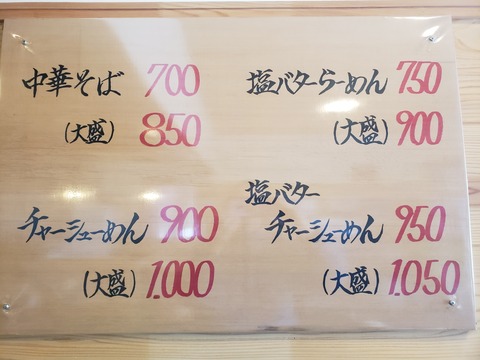 中華そば 700
(大盛) 850
チャーシューめん 900
(大盛) 1.000
塩バターらーめん 750
(大盛) 900
塩バター
チャーシューめん 950
(大盛) 1.050